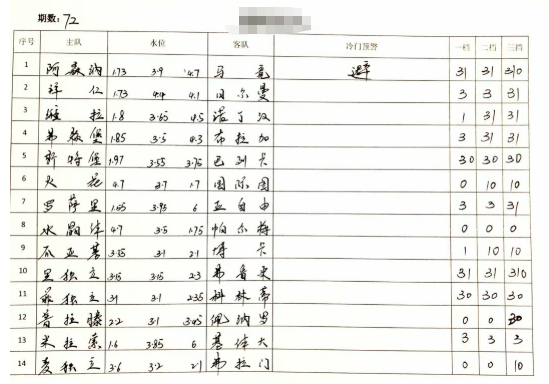 期数：72
序号 主队 水位 客队 冷门预警 一档 二档 三档
1 阿森纳 1.73 3.9 4.7 马竞 避 31 31 310
2 拜仁 1.73 4.4 4.1 贝尔曼 3 3 31
3 维拉 1.8 3.65 4.5 诺丁汉 1 31 31
4 弗赖堡 1.85 3.5 4.3 布拉加 3 31 31
5 斯特堡 1.97 3.55 3.75 巴列卡 30 30 30
6 火花 4.7 3.7 1.7 国际图 0 10 10
7 罗萨里 1.55 3.95 6 亚自由 3 3 31
8 水晶体 4.7 3.5 1.75 帕尔梅 0 0 0
9 瓜亚基 3.35 3.1 2.1 博卡 1 10 10
10 里独立 3.15 3.15 2.3 弗鲁米 31 31 310
11 独立 3.1 3.1 2.35 科林蒂 30 30 30
12 普拉滕 2.2 3.1 3.05 佩纳罗 0 0 30
13 米拉索 1.6 3.85 6 基体大 3 3 3
14 麦独立 3.6 3.2 2.1 弗拉门 0 0 10